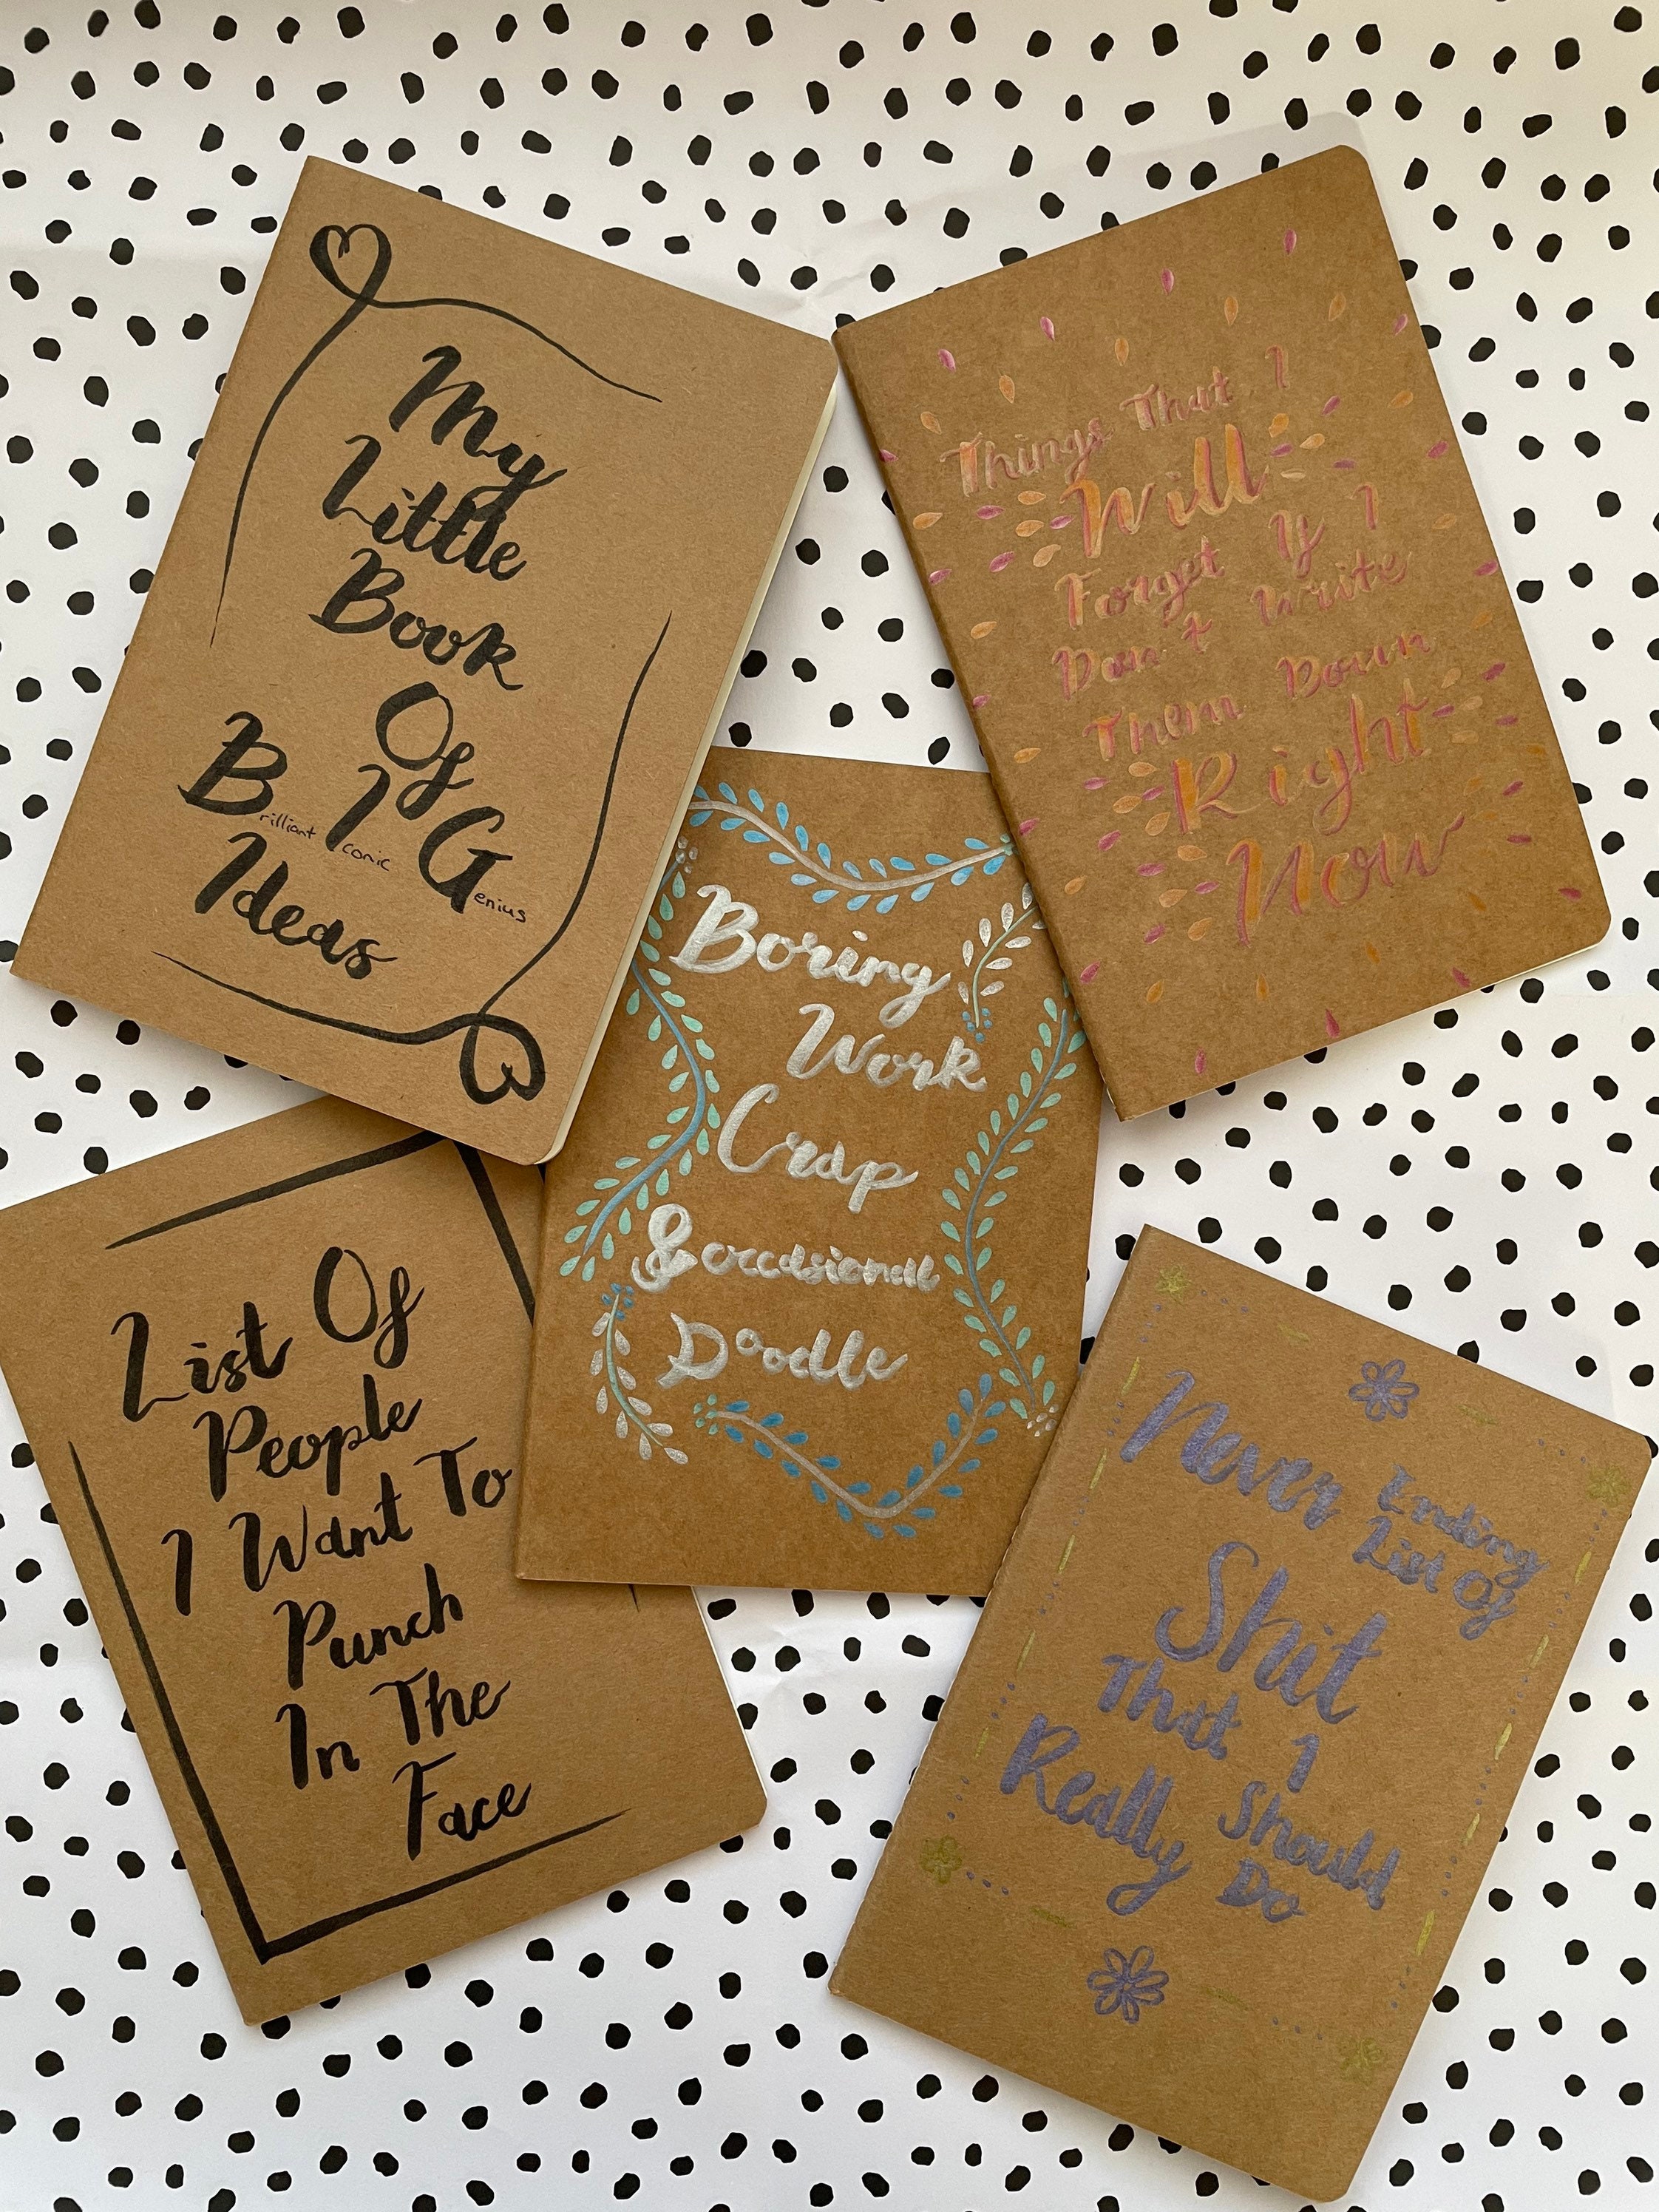 My
Little
Book
Of
Brilliant Iconic Genius
Ideas
Things That I
Will
Forget If I
Don't Write
Them Down
Right
Now
Boring
Work
Crap
& occasional
Doodle
List Of
People
I Want To
Punch
In The
Face
Never Ending
List Of
Shit
That I
Really Should
Do